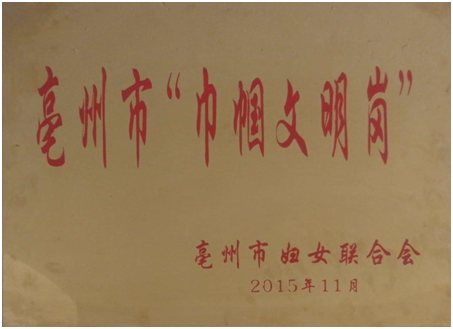 亳州市“巾帼文明岗”
亳州市妇女联合会
2015年11月